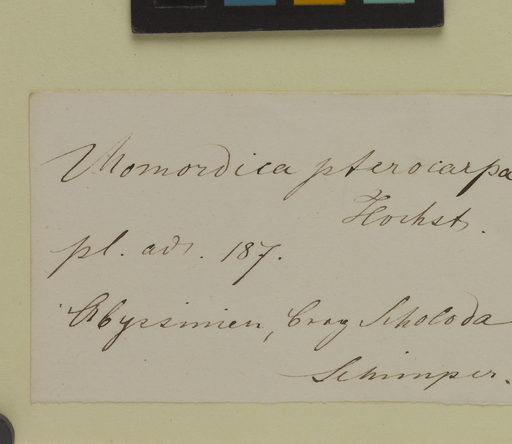 Momordica pterocarpa
Hochst.
pl. adv. 187.
Abyssinien, Berg Scholoda
Schimper.